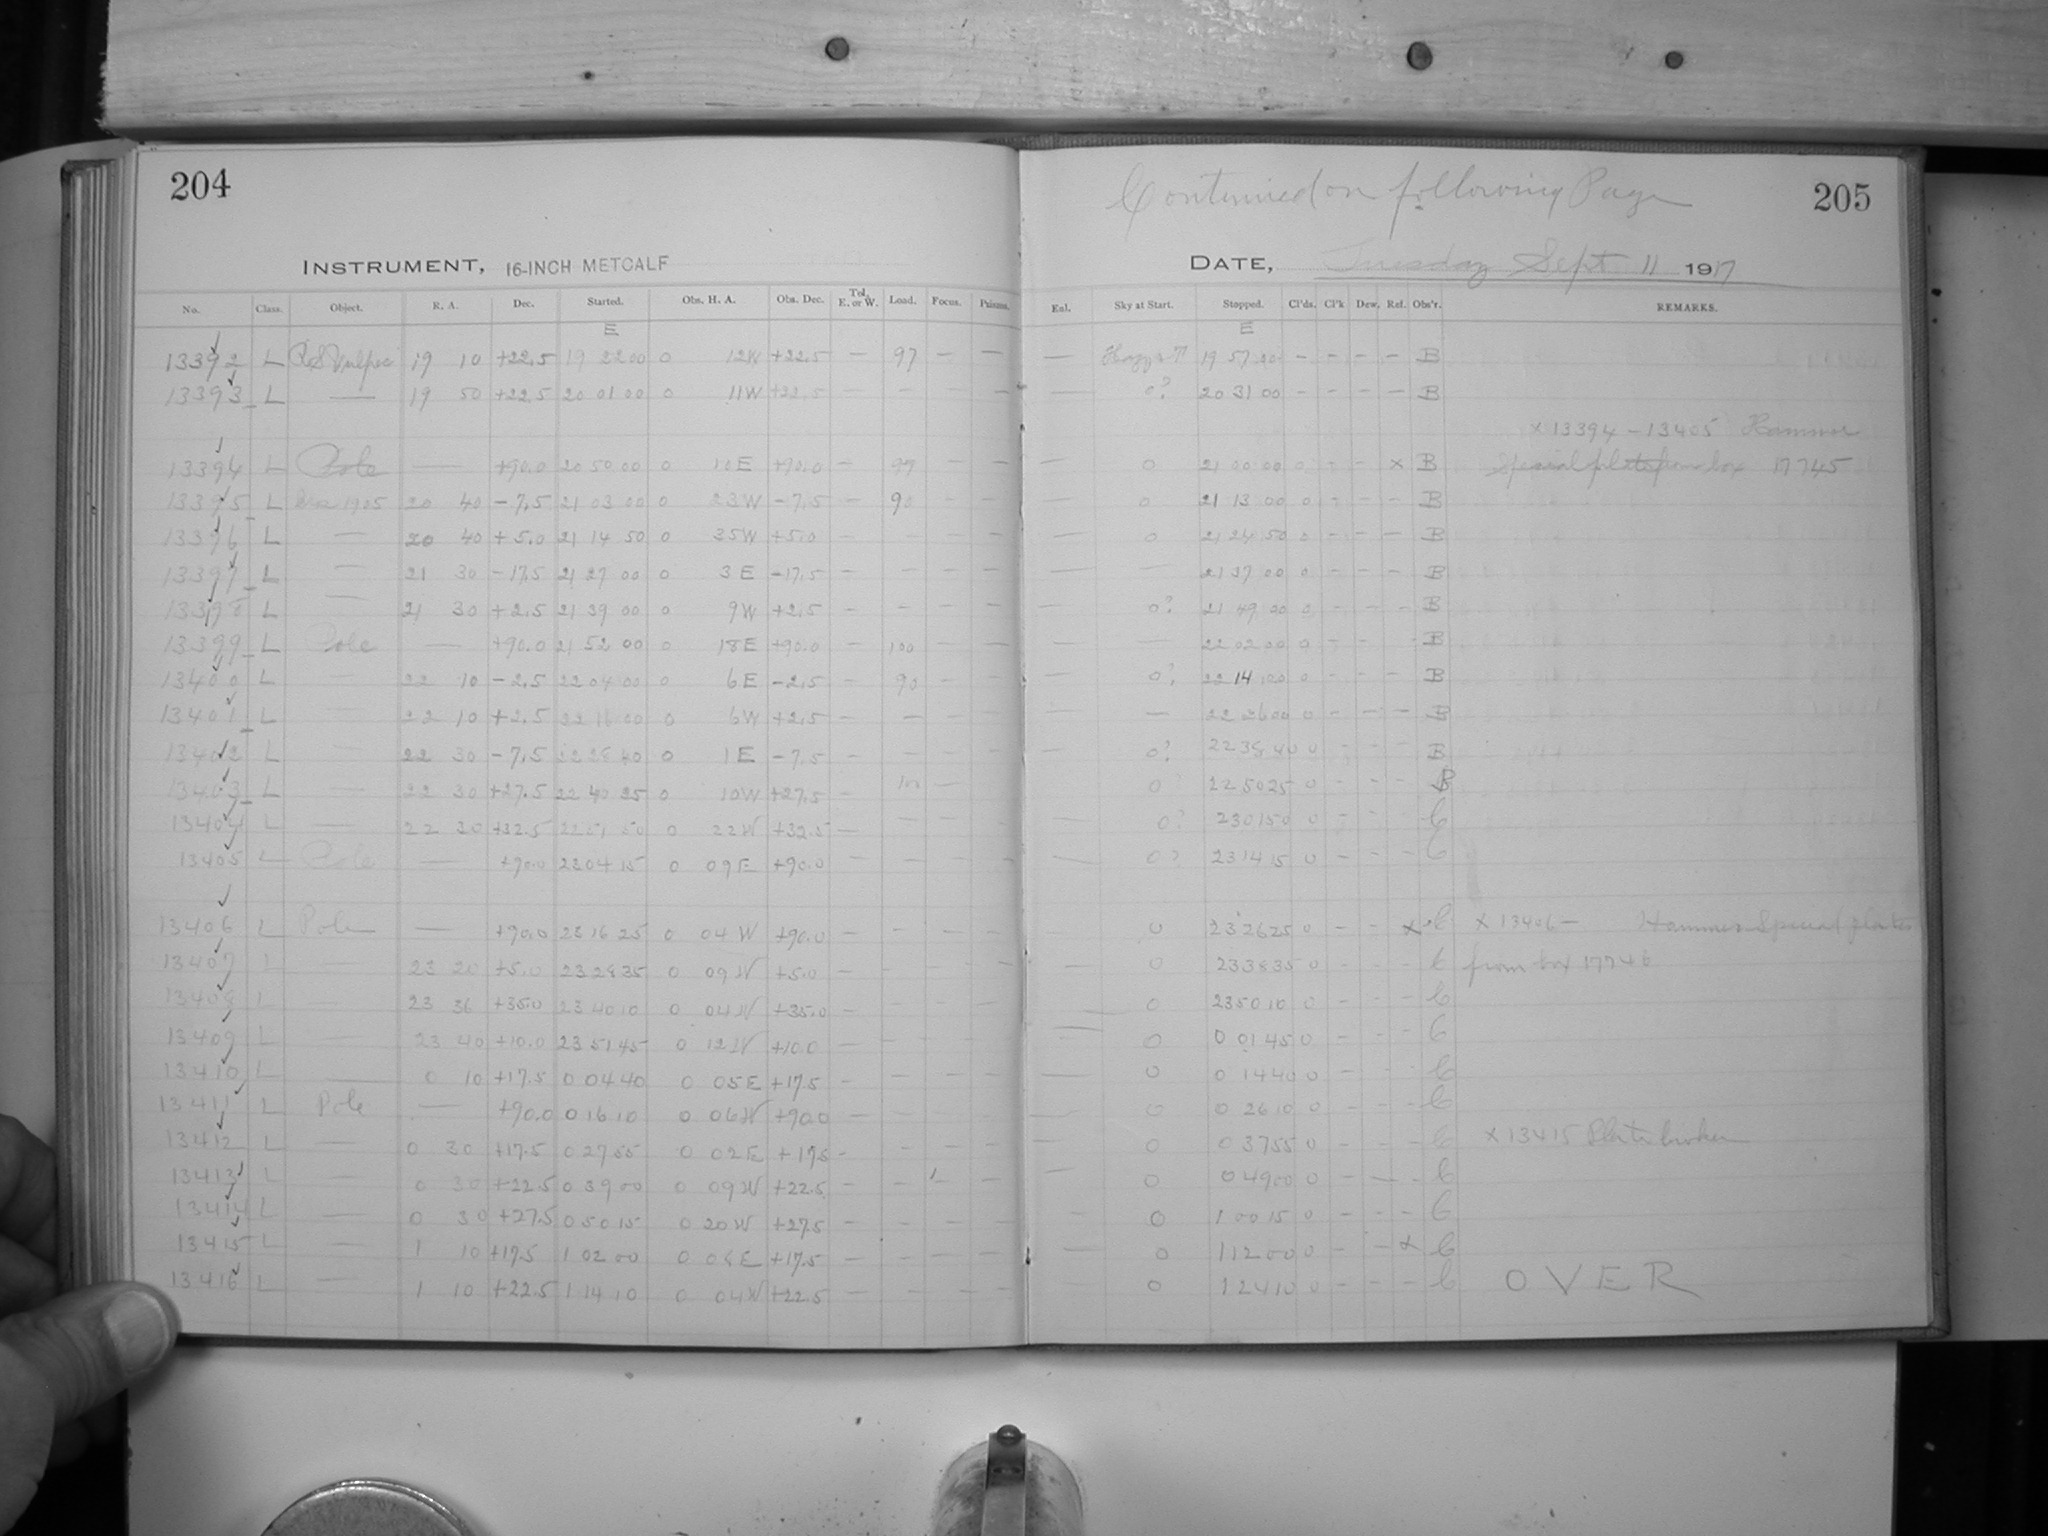 204
INSTRUMENT, 16-INCH METCALF
No. Class. Object. R. A. Dec. Started. Obs. H. A. Obs. Dec. Tel. E. or W. Load. Focus. Prisms.
E
13392 L RS Vulpec 19 10 +22.5 19 22 00 0 12W +22.5 — 97 — —
13393 L — 19 50 +22.5 20 01 00 0 11W +22.5 — — — —
13394 L Pole — +90.0 20 50 00 0 10E +90.0 — 99 — —
13395 L 1905 20 40 -7.5 21 03 00 0 23W -7.5 — 90 — —
13396 L — 20 40 +5.0 21 14 50 0 35W +5.0 — — — —
13397 L — 21 30 -17.5 21 27 00 0 3E -17.5 — — — —
13398 L — 21 30 +2.5 21 39 00 0 9W +2.5 — — — —
13399 L Pole — +90.0 21 52 00 0 18E +90.0 — 100 — —
13400 L — 22 10 -2.5 22 04 00 0 6E -2.5 — 90 — —
13401 L — 22 10 +2.5 22 16 00 0 6W +2.5 — — — —
13402 L — 22 30 -7.5 22 28 40 0 1E -7.5 —
13403 L — 22 30 +27.5 22 40 25 0 10W +27.5 — 100 — —
13404 L — 22 30 +32.5 22 51 50 0 22W +32.5 — — — —
13405 L Pole — +90.0 23 04 15 0 09E +90.0 — — — —
13406 L Pole — +90.0 23 16 25 0 04W +90.0 — — — —
13407 L — 23 20 +5.0 23 28 35 0 09W +5.0 — — — —
13408 L — 23 36 +35.0 23 40 10 0 04W +35.0 — — — —
13409 L — 23 40 +10.0 23 51 45 0 12W +10.0 — — — —
13410 L — 0 10 +17.5 0 04 40 0 05E +17.5 — — — —
13411 L Pole — +90.0 0 16 10 0 06W +90.0 — — — —
13412 L — 0 30 +17.5 0 27 55 0 02E +17.5 — — — —
13413 L — 0 30 +22.5 0 39 00 0 09W +22.5 — — — —
13414 L — 0 30 +27.5 0 50 15 0 20W +27.5 — — — —
13415 L — 1 10 +17.5 1 02 00 0 08E +17.5 — — — —
13416 L — 1 10 +22.5 1 14 10 0 04W +22.5 — — — —
Continued on following Page
205
DATE, Tuesday Sept 11 1917
Enl. Sky at Start. Stopped. Cl'ds. Cl'k Dew. Ref. Obs'r. REMARKS.
E
— 19 57 20 — — — — B
— 0? 20 31 00 — — — — B
x 13394 - 13405 Hammer
— 0 21 00 00 0 — — x B Special plates from box 17745
— 0 21 13 00 0 — — — B
— 0 21 24 50 0 — — — B
— — 21 37 00 0 — — — B
— 0? 21 49 00 0 — — — B
— — 22 02 00 0 — — — B
— 0? 22 14 00 0 — — — B
— — 22 26 00 0 — — — B
— 0? 22 38 40 0 — — — B
— 0? 22 50 25 0 — — — B
— 0? 23 01 50 0 — — — C
— 0? 23 14 15 0 — — — C
— 0 23 26 25 0 — — x C x 13406 — Hammer Special plates
— 0 23 38 35 0 — — — C from box 17746
— 0 23 50 10 0 — — — C
— 0 0 01 45 0 — — — C
— 0 0 14 40 0 — — — C
— 0 0 26 10 0 — — — C
— 0 0 37 55 0 — — — C x 13415 Plate broken
— 0 0 49 00 0 — — — C
— 0 1 00 15 0 — — — C
— 0 1 12 00 0 — — x C
— 0 1 24 10 0 — — — C OVER